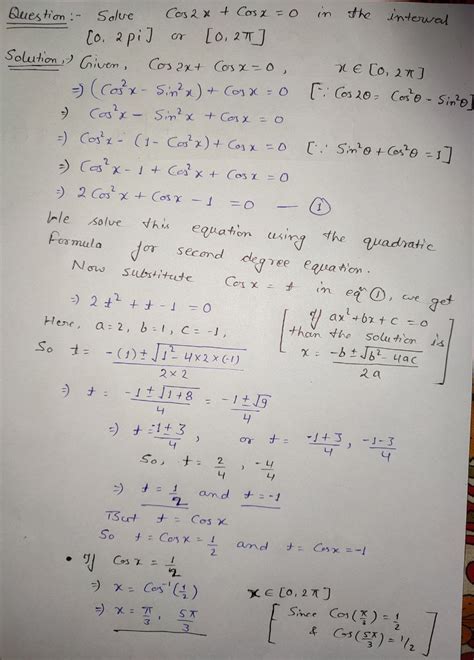 Question:- Solve Cos2x + Cosx = 0 in the interval
[0, 2pi] or [0, 2π]
Solution:, Given, Cos2x + Cosx = 0, x ∈ [0, 2π]
⇒ (Cos²x - Sin²x) + Cosx = 0 [∵ Cos2θ = Cos²θ - Sin²θ]
⇒ Cos²x - Sin²x + Cosx = 0
⇒ Cos²x - (1 - Cos²x) + Cosx = 0 [∵ Sin²θ + Cos²θ = 1]
⇒ Cos²x - 1 + Cos²x + Cosx = 0
⇒ 2Cos²x + Cosx - 1 = 0 — ①
We solve this equation using the quadratic
formula for second degree equation.
Now substitute Cosx = t in eqⁿ ①, we get
⇒ 2t² + t - 1 = 0 [If ax² + bx + c = 0
Here, a = 2, b = 1, c = -1, than the solution is
So t = -(1) ± √1² - 4×2×(-1) / 2×2 x = -b ± √b² - 4ac / 2a]
⇒ t = -1 ± √1+8 / 4 = -1 ± √9 / 4
⇒ t = -1 ± 3 / 4, or t = -1+3 / 4, -1-3 / 4
So, t = 2/4, -4/4
⇒ t = 1/2 and t = -1
But t = Cosx
So t = Cosx = 1/2 and t = Cosx = -1
• If Cosx = 1/2
⇒ x = Cos⁻¹(1/2) x ∈ [0, 2π]
⇒ x = π/3, 5π/3 [Since Cos(π/3) = 1/2
& Cos(5π/3) = 1/2]